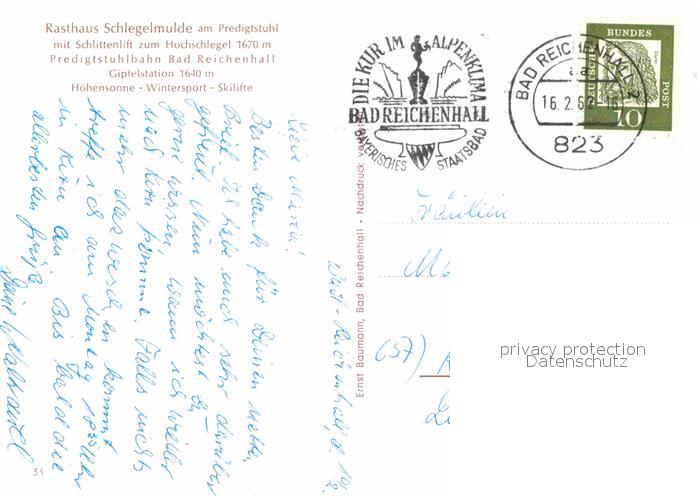 Rasthaus Schlegelmulde am Predigtstuhl
mit Schlittenlift zum Hochschlegel 1670 m
Predigtstuhlbahn Bad Reichenhall
Gipfelstation 1640 m
Höhensonne - Wintersport - Skilifte
DIE KUR IM ALPENKLIMA
BAD REICHENHALL
BAYERISCHES STAATSBAD
BAD REICHENHALL 2
aa
16.2.62
823
BUNDES
POST
DEUTSCHE
10
Ernst Baumann, Bad Reichenhall - Nachdruck
Bad-Reichenhall, d. 16.
Besten Dank für Deinen netten
Brief. Ich habe mich sehr darüber
gefreut. Nun möchtest Du
gerne wissen wann ich wieder
nach Kirn komme. Falls nichts
mehr dazwischen kommt
treffe ich am Montag
in Kirn ein. Bis bald die
allerbesten Grüße
Fräulein
(657)
privacy protection
Datenschutz
33